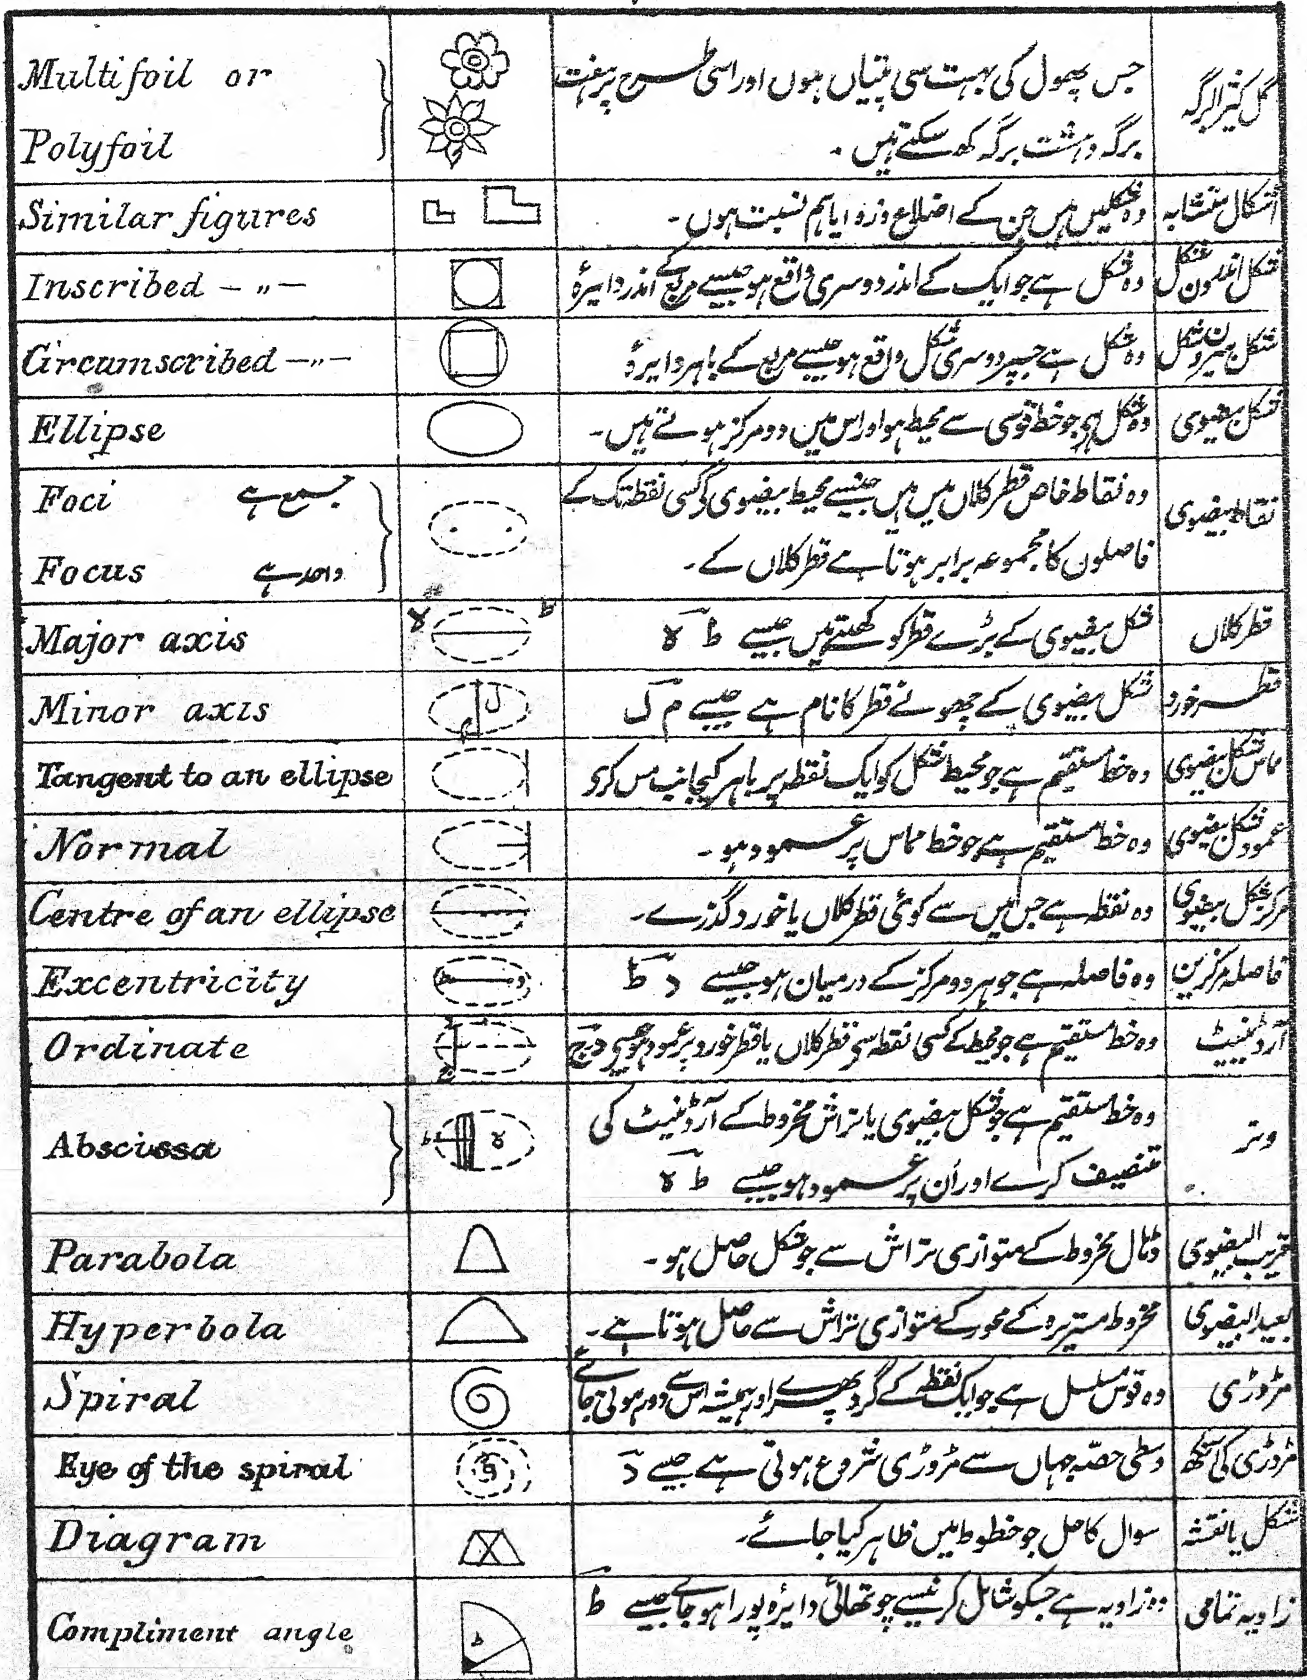 Multifoil or
Polyfoil
جس پھول کی بہت سی پتیاں ہوں اور اسی طرح پر ہفت
برگہ و ہشت برگہ کہہ سکتے ہیں ۔
گل کثیر البرگہ
Similar figures
وہ شکلیں ہیں جن کے اضلاع و زوایا ہم نسبت ہوں ۔
اشکال متشابہ
Inscribed – „ –
وہ شکل ہے جو ایک کے اندر دوسری واقع ہو جیسے مربع کے اندر دایرۂ
شکل اندرون شکل
Circumscribed – „ –
وہ شکل ہے جسپر دوسری شکل واقع ہو جیسے مربع کے باہر دایرۂ
شکل بیرون شکل
Ellipse
وہ شکل ہے جو خط قوسی سے محیط ہو اور اس میں دو مرکز ہوتے ہیں ۔
شکل بیضوی
Foci جمع ہے
Focus واحد ہے
وہ نقاط خاص قطر کلاں میں ہیں جنسے محیط بیضوی کے کسی نقطہ تک کے
فاصلوں کا مجموعہ برابر ہوتا ہے قطر کلاں کے ۔
نقاط بیضوی
Major axis
ط
لا
شکل بیضوی کے بڑے قطر کو کہتے ہیں جیسے ط لا
قطر کلاں
Minor axis
ل
م
شکل بیضوی کے چھوٹے قطر کا نام ہے جیسے م ل
قطر خورد
Tangent to an ellipse
وہ خط مستقیم ہے جو محیط شکل کو ایک نقطہ پر باہر کیجانب مس کرے
مماس شکل بیضوی
Normal
وہ خط مستقیم ہے جو خط مماس پر عمود ہو ۔
عمود شکل بیضوی
Centre of an ellipse
وہ نقطہ ہے جس میں سے کوئی قطر کلاں یا خورد گذرے ۔
مرکز شکل بیضوی
Excentricity
وہ فاصلہ ہے جو ہر دو مرکز کے درمیان ہو جیسے د ط
فاصلہ مرکزین
Ordinate
وہ خط مستقیم ہے جو محیط کے کسی نقطہ سے قطر کلاں یا قطر خورد پر عمود ہو جیسے د ج
آرڈینیٹ
Abscissa
ط
لا
وہ خط مستقیم ہے جو شکل بیضوی یا تراش مخروط کے آرڈنیٹ کی
تنصیف کرے اور اُن پر عمود ہو جیسے ط لا
وتر
Parabola
مخروط کے متوازی تراش سے جو شکل حاصل ہو ۔
قریب البیضوی
Hyperbola
مخروط مستدیرہ کے محور کے متوازی تراش سے حاصل ہوتا ہے ۔
بعید البیضوی
Spiral
وہ قوس مسلسل ہے جو ایک نقطہ کے گرد پھرے اور ہمیشہ اس سے دور ہوتی جائے
مڑوڑی
Eye of the spiral
وسطی حصّہ جہاں سے مڑوڑی شروع ہوتی ہے جیسے د
مڑوڑی کی آنکھ
Diagram
سوال کا حل جو خطوط میں ظاہر کیا جائے ۔
شکل یا نقشہ
Compliment angle
ط
وہ زاویہ ہے جسکو شامل کرنیسے چوتھائی دایرٔہ پورا ہو جائے جیسے ط
زاویہ تمامی